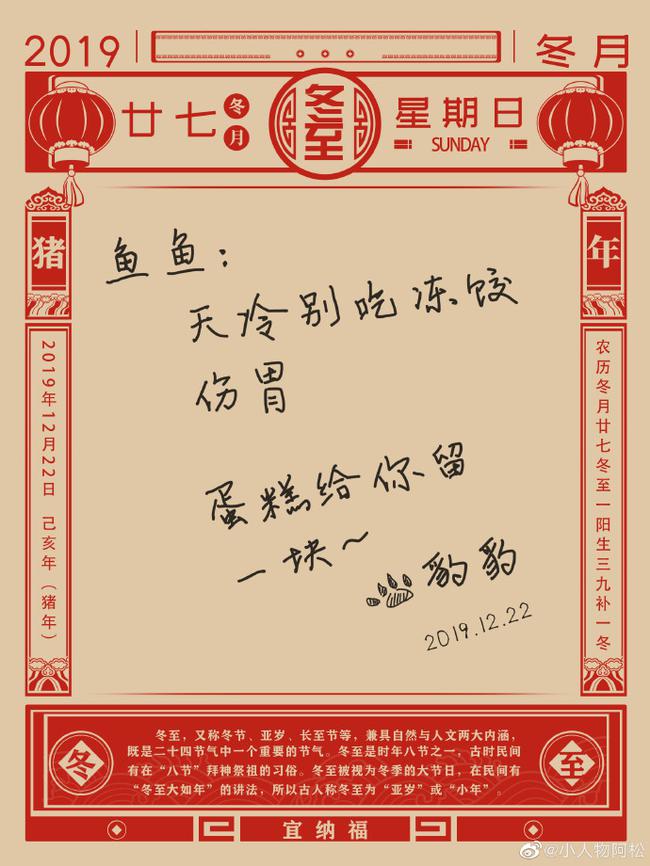 2019
冬月
廿七
冬月
冬至
星期日
SUNDAY
猪
年
2019年12月22日 己亥年（猪年）
农历冬月廿七冬至一阳生三九补一冬
鱼鱼：
天冷别吃冻饺
伤胃
蛋糕给你留
一块～
豹豹
2019.12.22
冬
至
冬至，又称冬节、亚岁、长至节等，兼具自然与人文两大内涵，
既是二十四节气中一个重要的节气。冬至是时年八节之一，古时民间
有在“八节”拜神祭祖的习俗。冬至被视为冬季的大节日，在民间有
“冬至大如年”的讲法，所以古人称冬至为“亚岁”或“小年”。
宜纳福
@小人物阿松